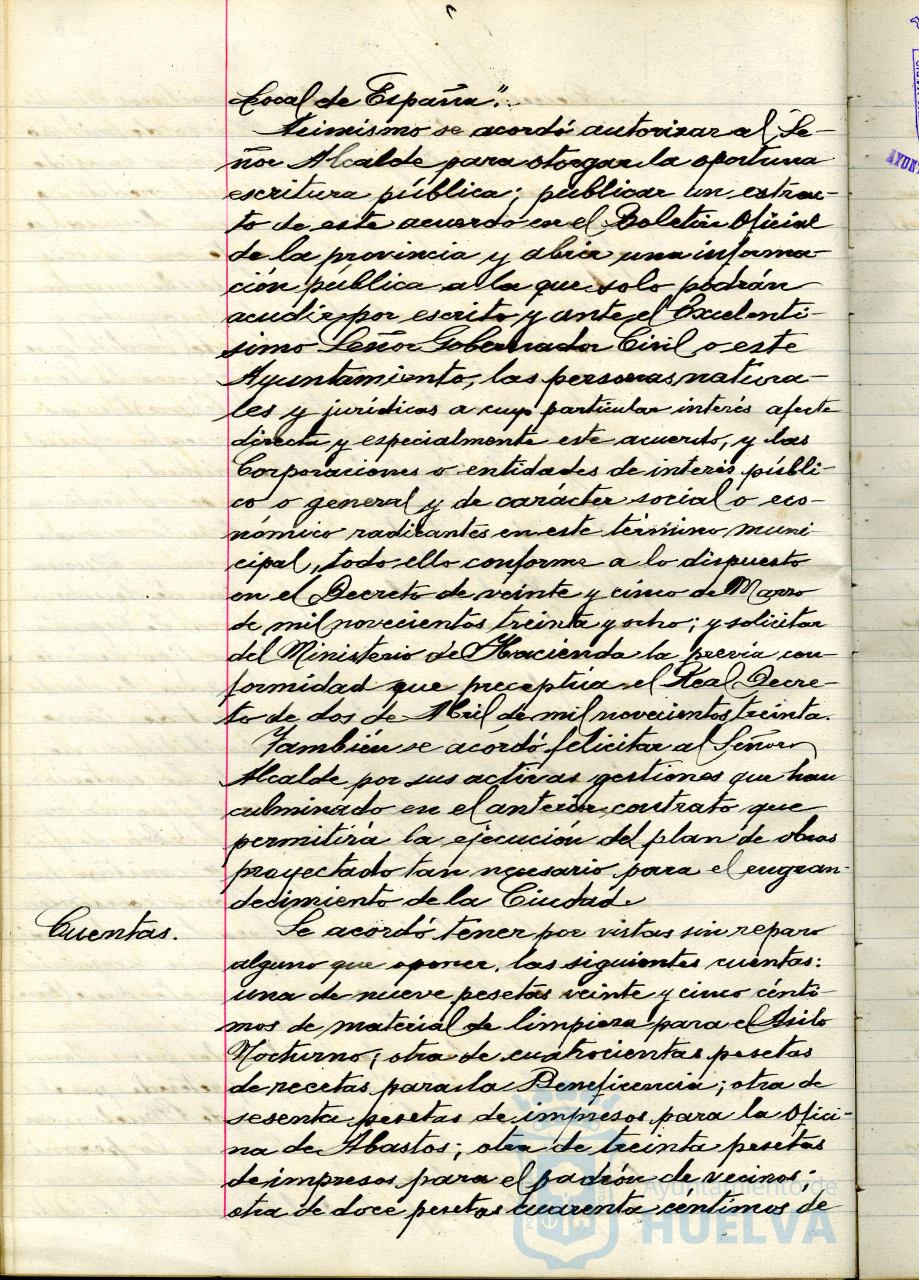 Local de España".
Asimismo se acordó autorizar al Se-
ñor Alcalde para otorgar la oportuna
escritura pública; publicar un extrac-
to de este acuerdo en el Boletín Oficial
de la provincia y abrir una informa-
ción pública a la que solo podrán
acudir por escrito y ante el Excelentí-
simo Señor Gobernador Civil o este
Ayuntamiento, las personas natura-
les y jurídicas a cuyo particular interés afecte
directa y especialmente este acuerdo, y las
Corporaciones o entidades de interés públi-
co o general y de carácter social o eco-
nómico radicantes en este término muni-
cipal, todo ello conforme a lo dispuesto
en el Decreto de veinte y cinco de Marzo
de mil novecientos treinta y ocho; y solicitar
del Ministerio de Hacienda la previa con-
formidad que preceptúa el Real Decre-
to de dos de Abril de mil novecientos treinta.
También se acordó felicitar al Señor
Alcalde por sus activas gestiones que han
culminado en el anterior contrato que
permitirá la ejecución del plan de obras
proyectado tan necesario para el engran-
decimiento de la Ciudad.
Cuentas.
Se acordó tener por vistas sin reparo
alguno que oponer, las siguientes cuentas:
una de nueve pesetas veinte y cinco cénti-
mos de material de limpieza para el Asilo
Nocturno; otra de cuatrocientas pesetas
de recetas para la Beneficencia; otra de
sesenta pesetas de impresos para la Ofici-
na de Abastos; otra de treinta pesetas
de impresos para el padrón de vecinos;
otra de doce pesetas cuarenta centimos de
Ayuntamiento de
HUELVA